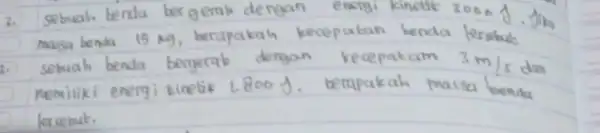 2. sebuah benda bergerak dengan energi kinetik 2000 J. Jika
massa benda 15 kg, berapakah kecepatan benda tersebut
2. sebuah benda bergerak dengan kecepatan 3 m/s dan
memiliki energi kinetik 1.800 J. berapakah massa benda
tersebut.